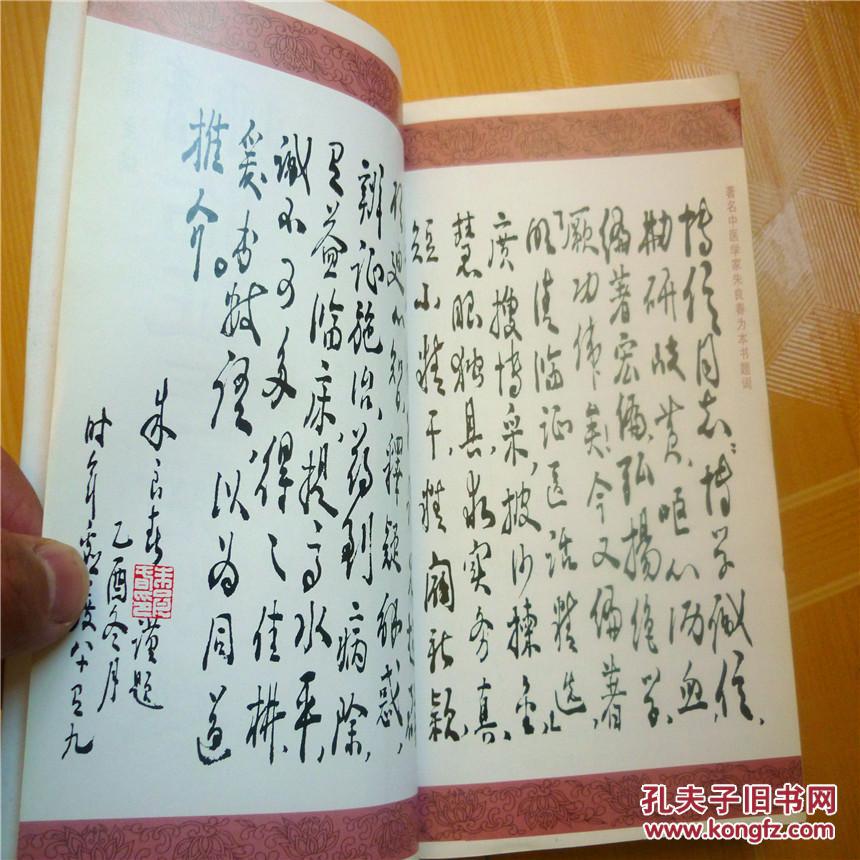 著名中医学家朱良春为本书题词
博学诚信,
勤研岐黄,呕心沥血,
编著宏编,弘扬绝学,
厥功伟矣!今又编著
明清临证医话精选,
广搜博采,披沙拣金,
慧眼独具,求实务真,
短小精干,精阐新颖,
释疑解惑,
辨证施治,药到病除,
有益临床,提高水平,
诚不可多得之佳构,
爰书数语,以为同道
推介。
朱良春谨题
乙酉冬月
时年虚度八十有九
孔夫子旧书网
www.kongfz.com